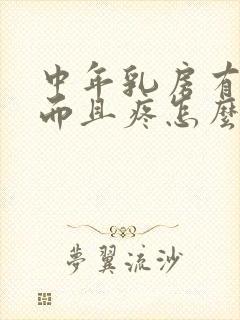 中年乳房有
而且疼怎麼
夢翼流沙